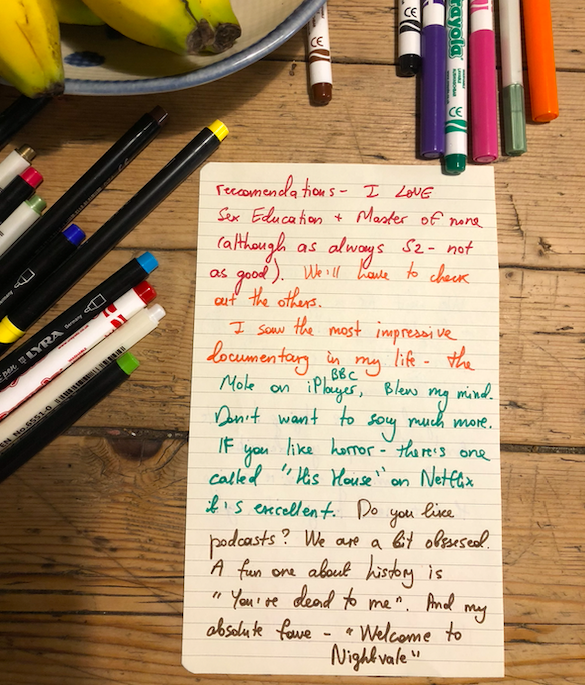 recomendations - I LOVE
Sex Education + Master of none
(although as always S2 - not
as good). We'll have to check
out the others.
I saw the most impressive
documentary in my life - the
Mole on BBC iPlayer, Blew my mind.
Don't want to say much more.
If you like horror - there's one
called "His House" on Netflix
it's excellent. Do you like
podcasts? We are a bit obssesed.
A fun one about history is
"You're dead to me". And my
absolute fave - "Welcome to
Nightvale"
Crayola
CE
CE
CE
LYRA
Germany